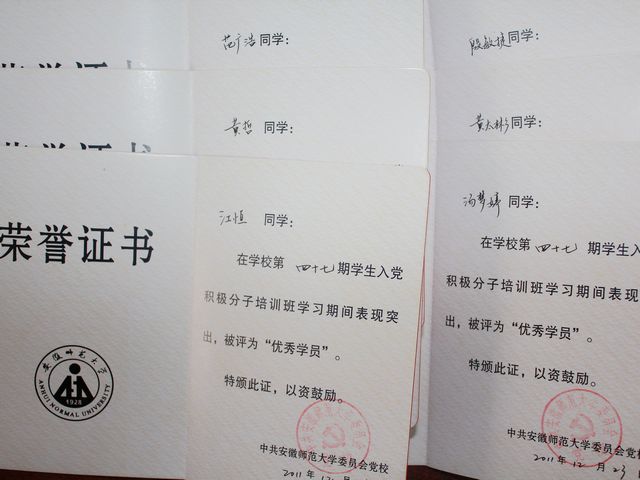 范广浩同学：
殷敏捷同学：
黄哲 同学：
黄太彬同学：
荣誉证书
安徽师范大学
ANHUI NORMAL UNIVERSITY
1928
江恒 同学：
在学校第 四十七 期学生入党
积极分子培训班学习期间表现突
出，被评为“优秀学员”。
特颁此证，以资鼓励。
中共安徽师范大学委员会党校
2011.12
汤梦婷 同学：
在学校第 四十七 期学生入
积极分子培训班学习期间表现
出，被评为“优秀学员”。
特颁此证，以资鼓励。
中共安徽师范大学委员会
2011.12月23